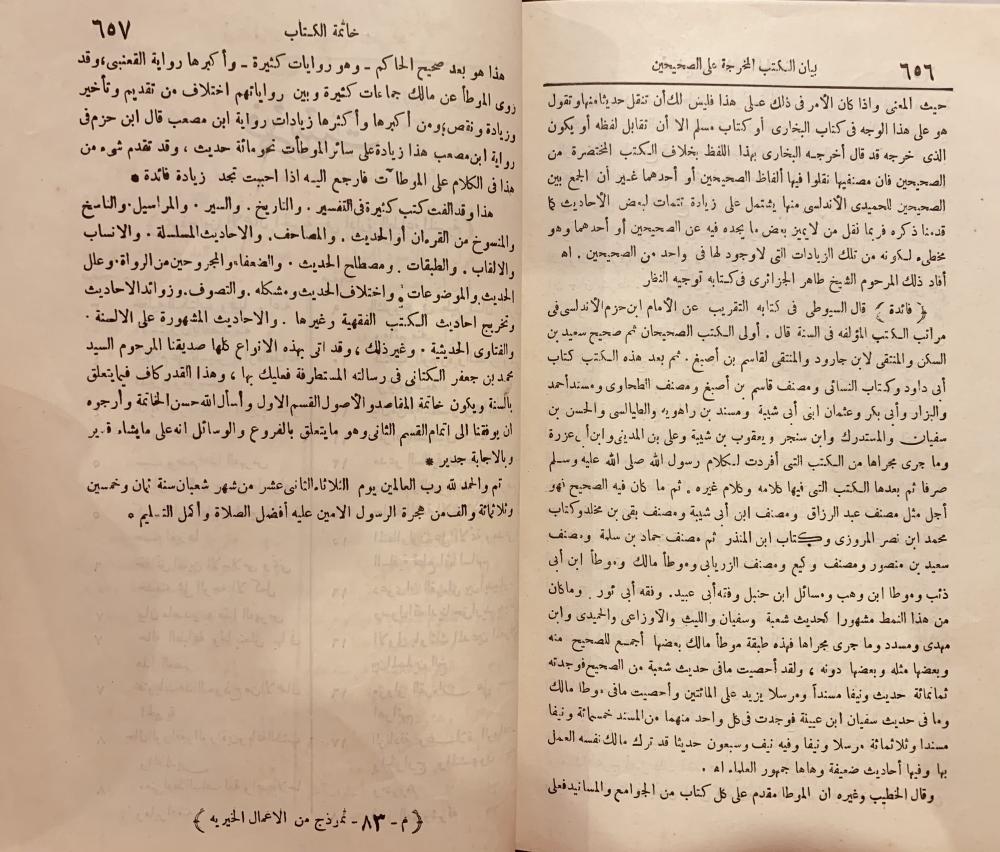 ٦٥٦
بيان الكتب المخرجة على الصحيحين
حيث المعنى واذا كان الأمر فى ذلك على هذا فليس لك أن تنقل حديثا منها وتقول
هو على هذا الوجه فى كتاب البخارى أو كتاب مسلم الا أن تقابل لفظه أو يكون
الذى خرجه قد قال أخرجه البخارى بهذا اللفظ بخلاف الكتب المختصرة من
الصحيحين فان مصنفيها نقلوا فيها ألفاظ الصحيحين أو أحدهما غير أن الجمع بين
الصحيحين للحميدى الأندلسى منها يشتمل على زيادة تتمات لبعض الأحاديث كما
قدمنا ذكره فربما نقل من لايميز بعض ما يجده فيه عن الصحيحين أو أحدهما وهو
مخطىء لكونه من تلك الزيادات التى لاوجود لها فى واحد من الصحيحين . اه
أفاد ذلك المرحوم الشيخ طاهر الجزائرى فى كتابه توجيه النظار
﴿ فائدة ﴾ قال السيوطى فى كتابه التقريب عن الأمام ابن حزم الأندلسى فى
مراتب الكتب المؤلفه فى السنة قال . أولى الكتب الصحيحان ثم صحيح سعيد بن
السكن والمنتقى لابن جارود والمنتقى لقاسم بن أصبغ . ثم بعد هذه الكتب كتاب
أبى داود وكتاب النسائى ومصنف قاسم بن أصبغ ومصنف الطحاوى ومسند أحمد
والبزار وأبى بكر وعثمان ابنى أبى شيبة ومسند بن راهويه والطيالسى والحسن بن
سفيان والمستدرك وابن سنجر ويعقوب بن شيبة وعلى بن المدينى وابن أبى عزرة
وما جرى مجراها من الكتب التى أفردت لكلام رسول الله صلى الله عليه وسلم
صرفا ثم بعدها الكتب التى فيها كلامه وكلام غيره . ثم ما كان فيه الصحيح فهو
أجل مثل مصنف عبد الرزاق ومصنف ابن أبى شيبة ومصنف بقى بن مخلد وكتاب
محمد ابن نصر المروزى وكتاب ابن المنذر ثم مصنف حماد بن سلمة ومصنف
سعيد بن منصور ومصنف وكيع ومصنف الزريابى وموطأ مالك وموطأ ابن أبى
ذئب وموطا ابن وهب ومسائل ابن حنبل وفقه أبى عبيد . وفقه أبى ثور . وماكان
من هذا النمط مشهورا كحديث شعبة وسفيان والليث والاوزاعى والحميدى وابن
مهدى ومسدد وما جرى مجراها فهذه طبقة موطأ مالك بعضها أجمع للصحيح منه
وبعضها مثله وبعضها دونه ، ولقد أحصيت مافى حديث شعبة من الصحيح فوجدته
ثمانمائة حديث ونيفا مسنداً ومرسلا يزيد على المائتين وأحصيت مافى موطا مالك
وما فى حديث سفيان ابن عيينة فوجدت فى كل واحد منهما من المسند خمسمائة ونيفا
مسندا وثلاثمائة مرسلا ونيفا وفيه نيف وسبعون حديثا قد ترك مالك نفسه العمل
بها وفيها أحاديث ضعيفة وهاها جمهور العلماء اه .
وقال الخطيب وغيره ان الموطا مقدم على كل كتاب من الجوامع والمسانيد فعلى
خاتمة الكتاب
٦٥٧
هذا هو بعد صحيح الحاكم ـ وهو روايات كثيرة ـ وأكبرها رواية القعنبى ، وقد
روى الموطأ عن مالك جماعات كثيرة وبين رواياتهم اختلاف من تقديم وتأخير
وزيادة ونقص ، ومن أكبرها وأكثرها زيادات رواية ابن مصعب قال ابن حزم فى
رواية ابن مصعب هذا زيادة على سائر الموطأت نحو مائة حديث ، وقد تقدم شىء من
هذا فى الكلام على الموطا آت فارجع اليه اذا احببت تجد زيادة فائدة *
هذا وقد الفت كتب كثيرة فى التفسير . والتاريخ . والسير . والمراسيل . والناسخ
والمنسوخ من القرءان أو الحديث . والمصاحف . والاحاديث المسلسلة . والانساب
والالقاب . والطبقات . ومصطلح الحديث . والضعفاء والمجروحين من الرواة . وعلل
الحديث والموضوعات ، واختلاف الحديث ومشكله . والتصوف . وزوائد الاحاديث
وتخريج احاديث الكتب الفقهية وغيرها . والاحاديث المشهورة على الالسنة .
والفتاوى الحديثية . وغير ذلك ، وقد اتى بهذه الانواع كلها صديقنا المرحوم السيد
محمد بن جعفر الكتانى فى رسالته المستطرفة فعليك بها ، وهذا القدر كاف فيما يتعلق
بالسنة ويكون خاتمة المقاصد والأصول القسم الاول وأسأل الله حسن الخاتمة وأرجوه
ان يوفقنا الى اتمام القسم الثانى وهو ما يتعلق بالفروع والوسائل انه على مايشاء قدير
وبالاجابة جدير *
تم والحمد لله رب العالمين يوم الثلاثاء الثانى عشر من شهر شعبان سنة ثمان وخمسين
وثلاثمائة والف من هجرة الرسول الامين عليه أفضل الصلاة وأكمل التسليم *
﴿ م ـ ٨٣ ـ نموذج من الاعمال الخيريه ﴾